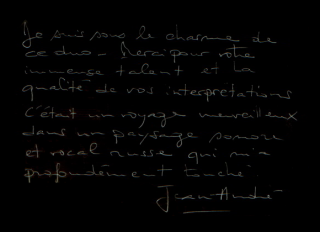 Je suis sous le charme de
ce duo - Merci pour votre
immense talent et la
qualité de vos interprétations
C'était un voyage merveilleux
dans un paysage sonore
et vocal russe qui m'a
profondément touché.
Jean-André